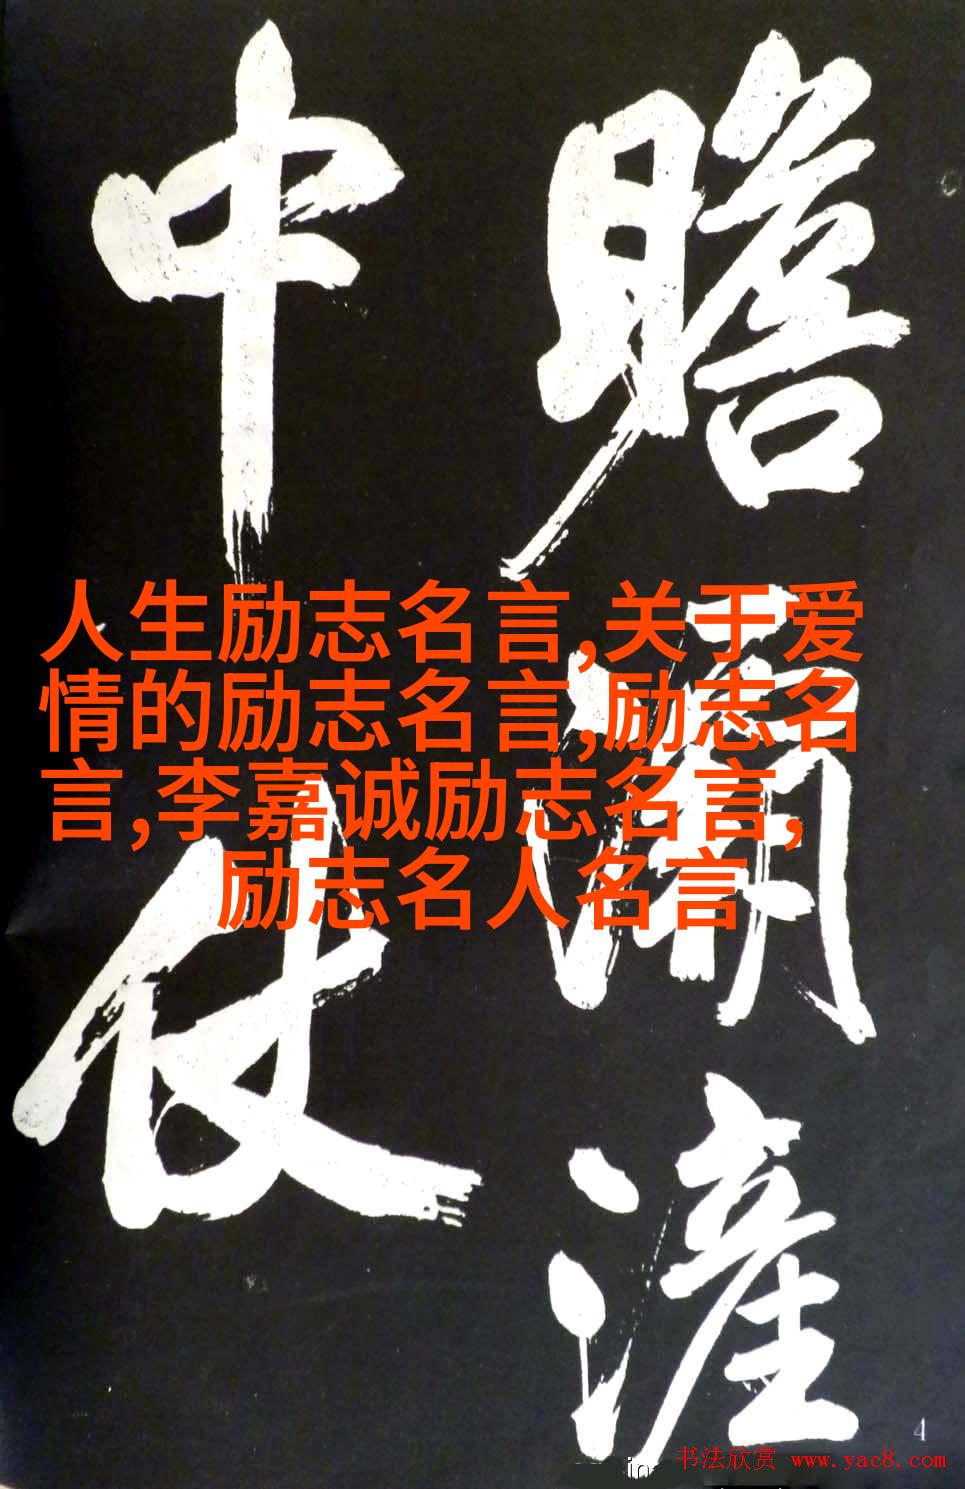 瞻
滻
中
仗
人生励志名言,关于爱
情的励志名言,励志名
言,李嘉诚励志名言,
励志名人名言
4
书法欣赏 www.yac8.com